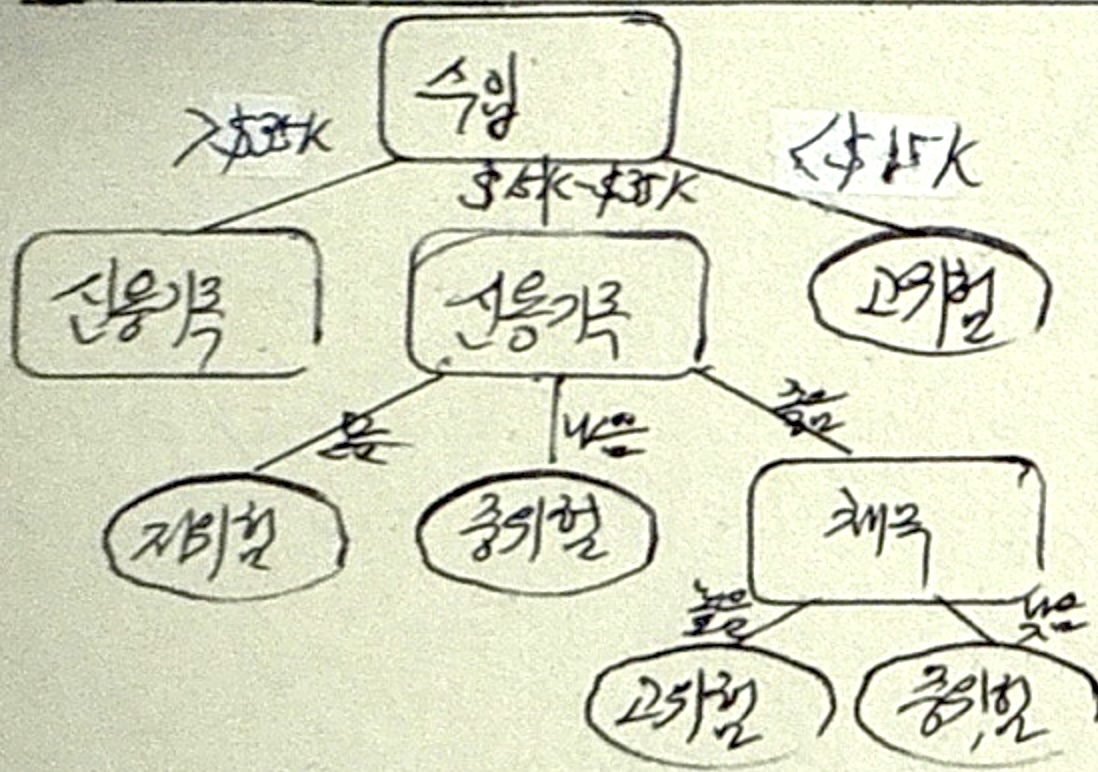 수입
>$35K
$15K-$35K
<$15K
신용기록
신용기록
고위험
나쁨
좋음
저위험
중위험
채무
높음
낮음
고위험
중위험